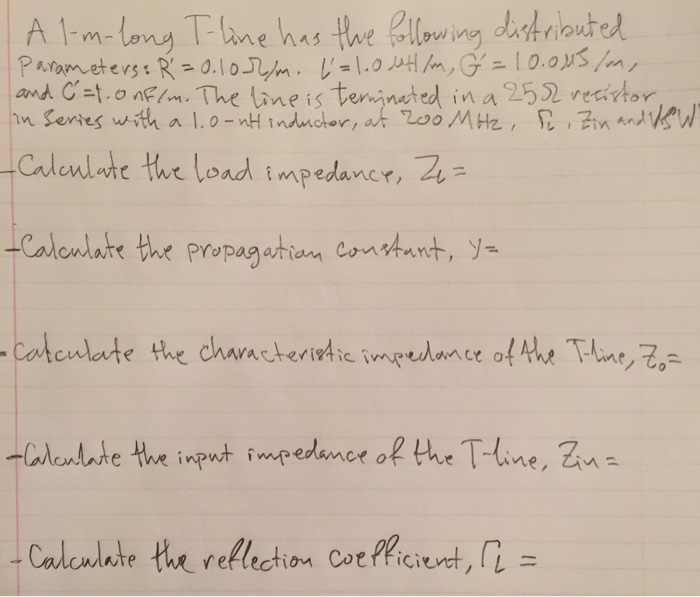 A 1-m-long T-line has the following distributed
Parameters: R' = 0.10 Ω/m. L' = 1.0 µH/m, G' = 10.0 µS/m,
and C' = 1.0 nF/m. The line is terminated in a 25Ω resistor
in Series with a 1.0-nH inductor, at 200 MHz, Γ_L, Zin and VSW
- Calculate the load impedance, Z_L =
- Calculate the propagation constant, γ =
- Calculate the characteristic impedance of the T-line, Z₀ =
- Calculate the input impedance of the T-line, Zin =
- Calculate the reflection coefficient, Γ_L =